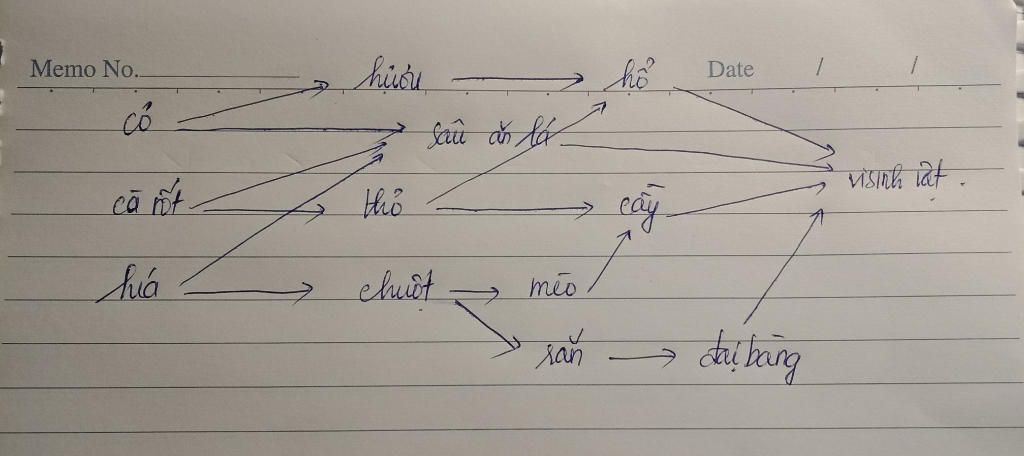 Memo No. hươu hổ Date / /
cỏ sâu ăn lá
vi sinh vật .
cà rốt thỏ cầy
lúa chuột mèo
rắn đại bàng